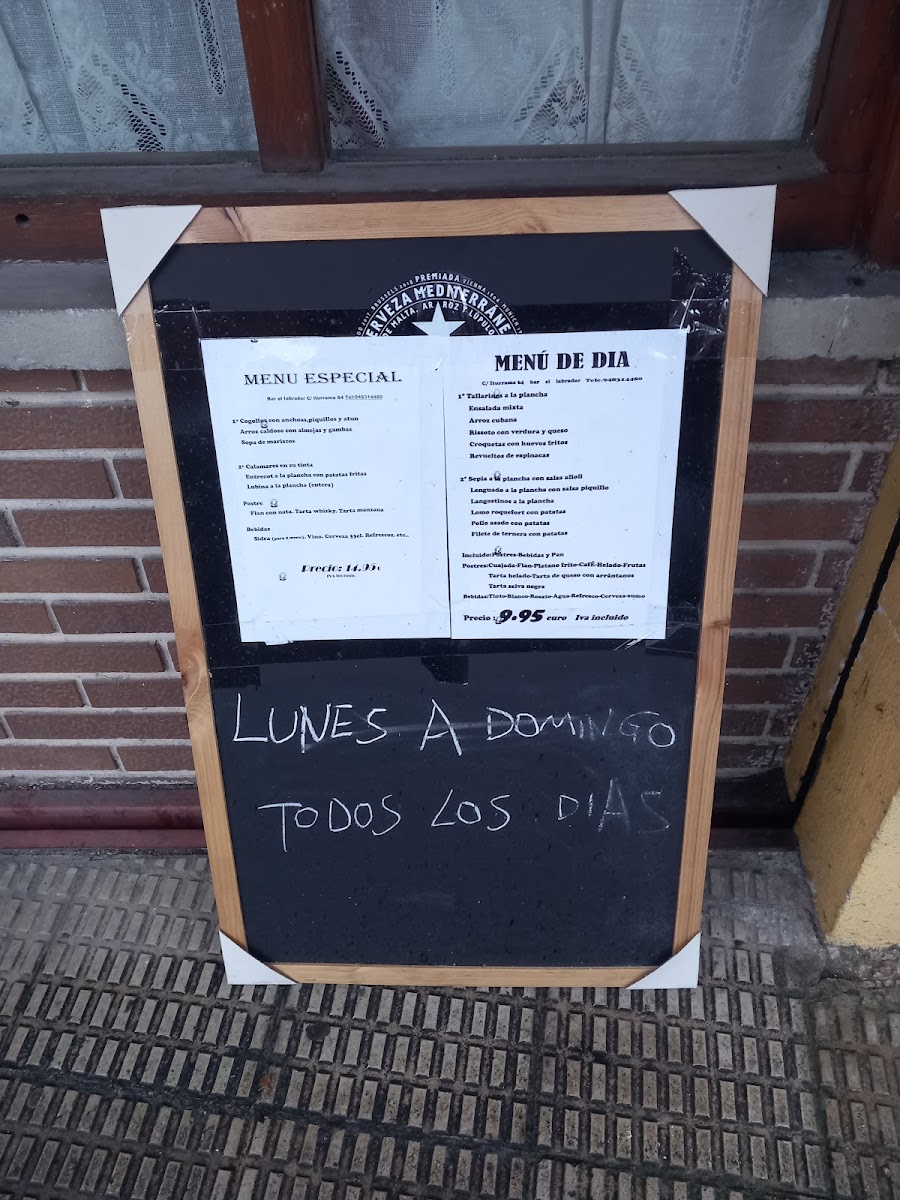 PREMIADA
CERVEZA MEDITERRÁNE
DE MALTA, ARROZ Y LÚPULO
MENU ESPECIAL
Bar el labrador C/ Iturrama 64 Tel:948314480
1º Cogollos con anchoas,piquillos y atun
Arroz caldoso con almejas y gambas
Sopa de mariscos
2º Calamares en su tinta
Entrecot a la plancha con patatas fritas
Lubina a la plancha (entera)
Postre
Flan con nata. Tarta whisky. Tarta manzana
Bebidas
Sidra (para 2 menú). Vino. Cerveza 33cl. Refrescos. etc..
Precio: 14.95€
IVA Incluido
MENÚ DE DIA
C/ Iturrama 64 bar el labrador Tele.948314480
1º Tallarines a la plancha
Ensalada mixta
Arroz cubana
Rissoto con verdura y queso
Croquetas con huevos fritos
Revueltos de espinacas
2º Sepia a la plancha con salsa alioli
Lenguado a la plancha con salsa piquillo
Langostinos a la plancha
Lomo roquefort con patatas
Pollo asado con patatas
Filete de ternera con patatas
Incluido:Postres-Bebidas y Pan
Postres:Cuajada-Flan-Platano frito-CafÉ-Helado-Frutas
Tarta helado-Tarta de queso con arrántanos
Tarta selva negra
Bebidas:Tinto-Blanco-Rosato-Agua-Refresco-Cerveza-zumo
Precio : 9.95 euro Iva incluido
LUNES A DOMINGO
TODOS LOS DIAS